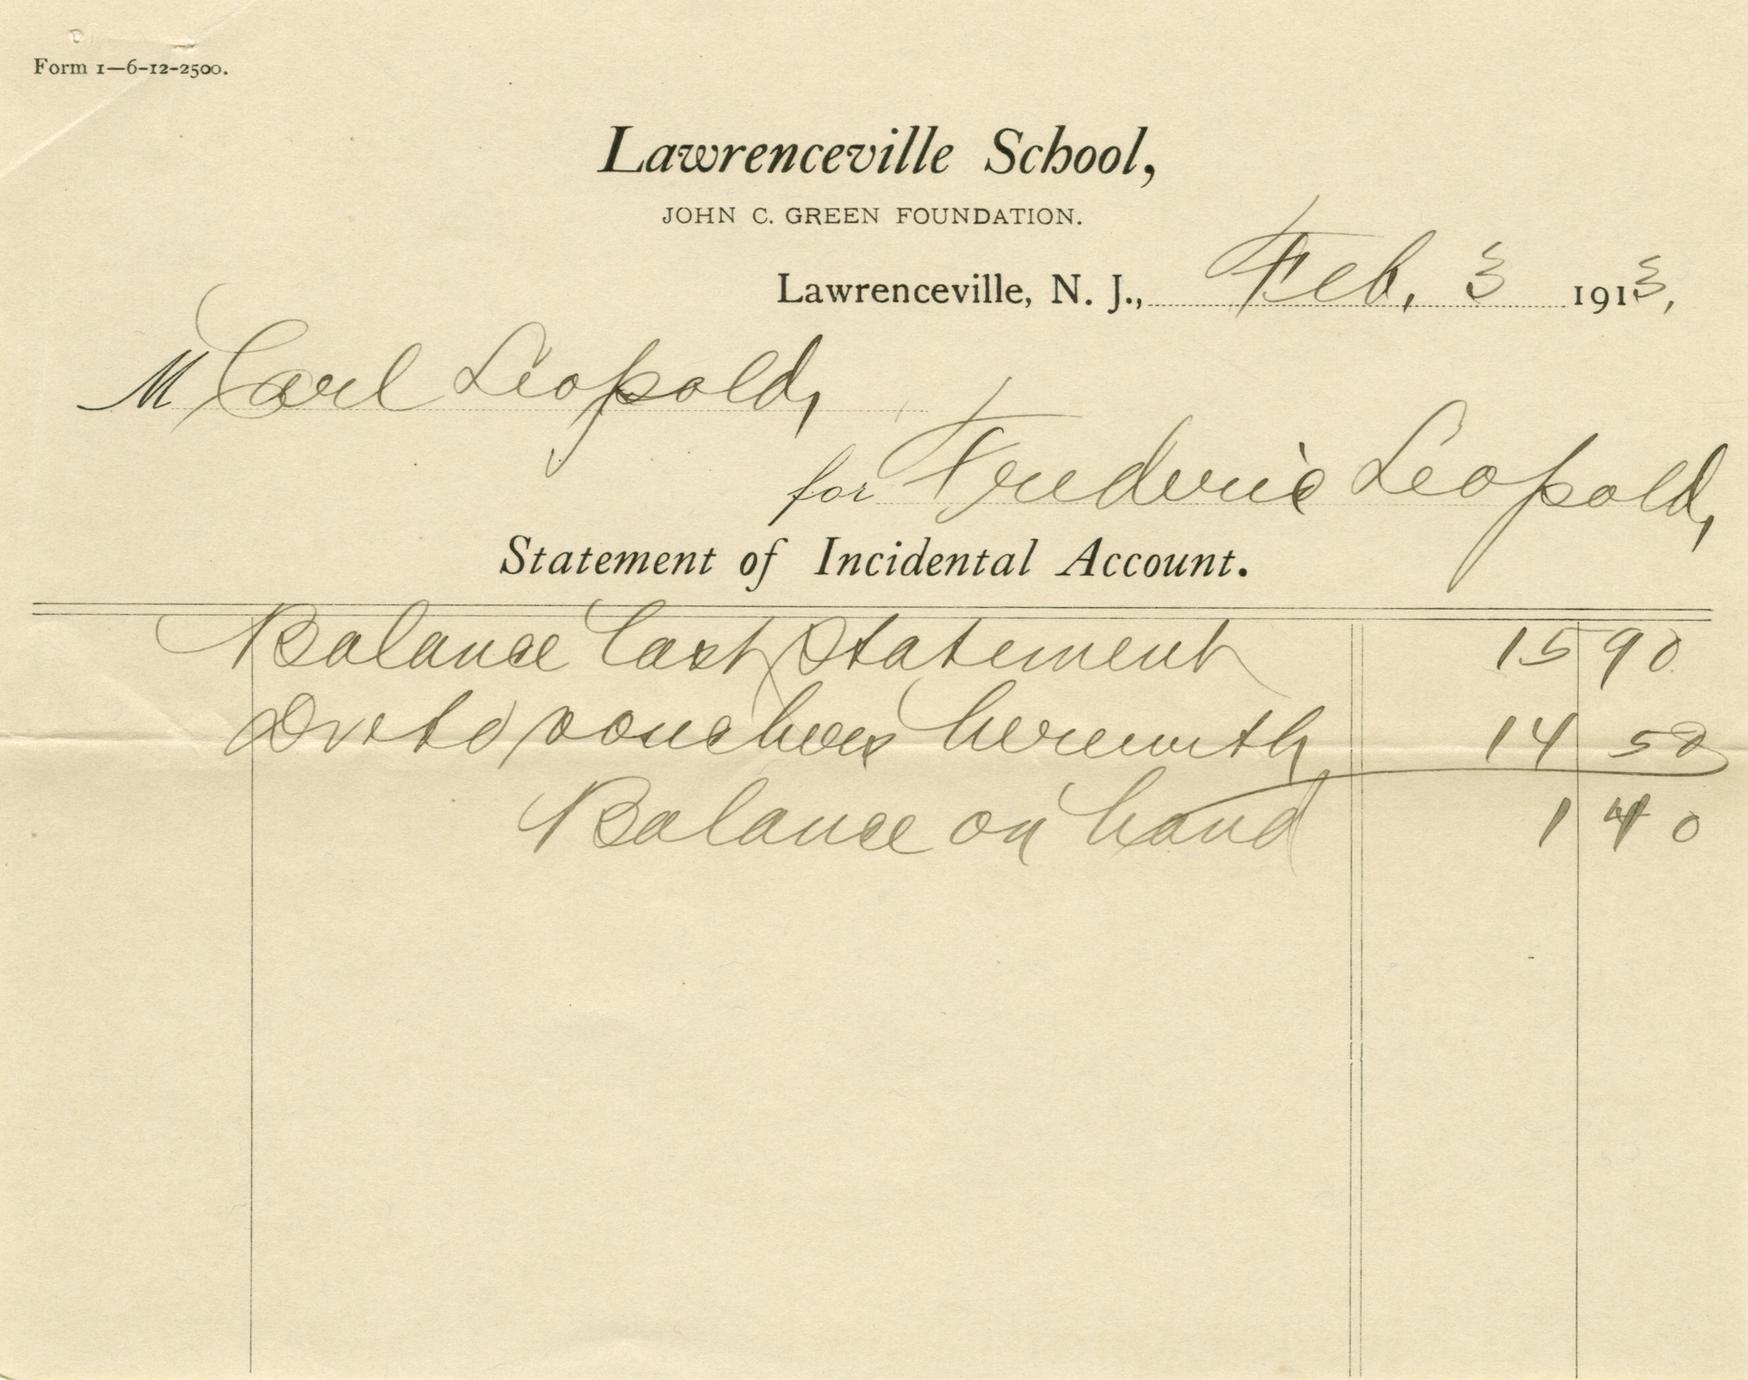 Form 1—6-12-2500.
Lawrenceville School,
JOHN C. GREEN FOUNDATION.
Lawrenceville, N. J., Feb. 3 1913,
M Carl Leopold,
for Frederic Leopold,
Statement of Incidental Account.
Balance last Statement 15 90
vouchers herewith 14 50
Balance on hand 1 40